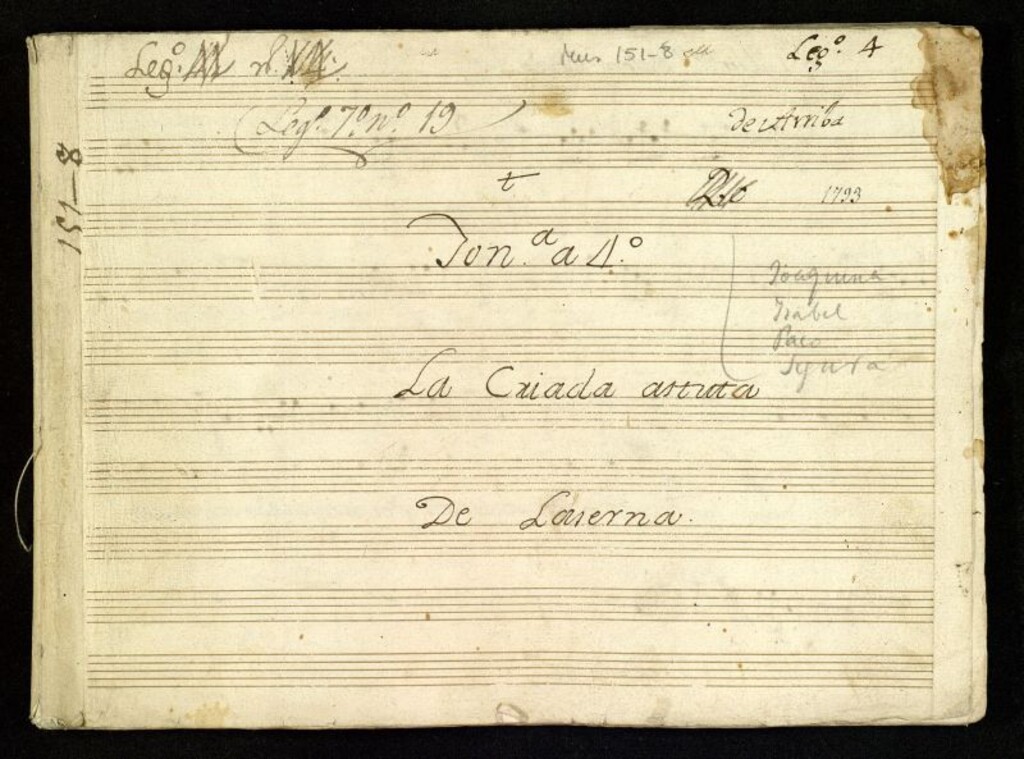 Leg.º nº
Mus 151-8
Leg.º 4
Leg.º 7.º n.º 19
de Arriba
151-8
t
1793
Ton.ª a 4.º
Joaquina
Isabel
Paco
Segura
La Criada astuta
De Laserna.